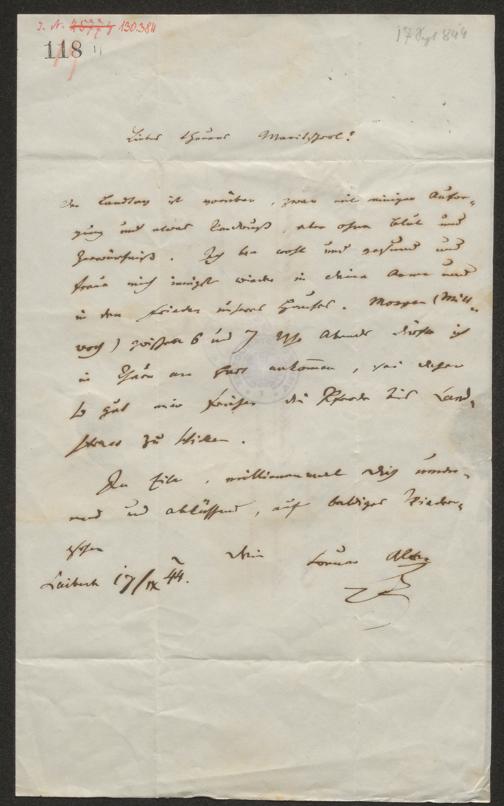 I. N. 130.384
118
17 Sept 844
Liebes theures Mariischerl!
Der Landtag ist vorüber, zwar mit einiger Aufre-
gung und etwas Verdruß, aber ohne Blut und
Zerwürfniß. Ich bin wohl und gesund und
freue mich innigst wieder in deine Arme und
in den Frieden unseres Hauses. Morgen (Mitt-
woch) zwischen 6 und 7 Uhr Abends dürfte ich
in Thurn am Hart ankommen, sei daher
so gut mir früher die Pferde zur Land-
strass zu schicken.
In Eile, millionenmal Dich umar-
mend und abküssend, auf baldiges Wieder-
sehen Dein treuer Alter
Laibach 17/IX 44.